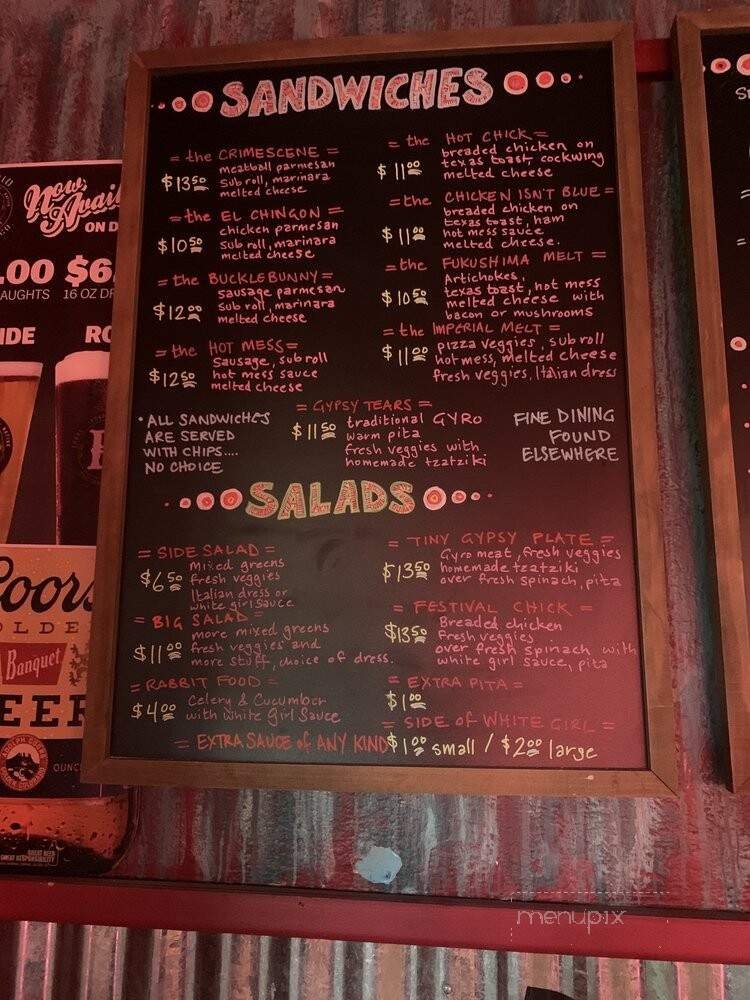 SANDWICHES
= the CRIMESCENE =
$13.50
meatball parmesan
Sub roll, marinara
melted cheese
= the EL CHINGON =
$10.50
chicken parmesan
Sub roll, marinara
melted cheese
= the BUCKLEBUNNY =
$12.00
sausage parmesan
Sub roll, marinara
melted cheese
= the HOT MESS =
$12.50
Sausage, sub roll
hot mess sauce
melted cheese
= the HOT CHICK =
$11.00
breaded chicken on
texas toast, cockwing
melted cheese
= the CHICKEN ISN'T BLUE =
$11.00
breaded chicken on
texas toast, ham
hot mess sauce
melted cheese.
= the FUKUSHIMA MELT =
$10.50
Artichokes,
texas toast, hot mess
melted cheese with
bacon or mushrooms
= the IMPERIAL MELT =
$11.00
pizza veggies, sub roll
hot mess, melted cheese
fresh veggies, Italian dress
• ALL SANDWICHES
ARE SERVED
WITH CHIPS....
NO CHOICE
= GYPSY TEARS =
$11.50
traditional GYRO
warm pita
fresh veggies with
homemade tzatziki
FINE DINING
FOUND
ELSEWHERE
SALADS
= SIDE SALAD =
$6.50
Mixed greens
fresh veggies
Italian dress or
white girl sauce
= BIG SALAD =
$11.00
more mixed greens
fresh veggies and
more stuff, choice of dress.
= RABBIT FOOD =
$4.00
Celery & Cucumber
with White Girl Sauce
= TINY GYPSY PLATE =
$13.50
Gyro meat, fresh veggies
homemade tzatziki
over fresh spinach, pita
= FESTIVAL CHICK =
$13.50
Breaded chicken
Fresh veggies
over fresh spinach with
white girl sauce, pita
= EXTRA PITA =
$1.00
= SIDE of WHITE GIRL =
= EXTRA SAUCE of ANY KIND
$1.00 small / $2.00 large
Now
ON D
.00 $6.
AUGHTS 16 OZ DR
IDE RO
Coors
OLDE
Banquet
EER
OUNC
GREAT BEER
GREAT RESPONSIBILITY
menupix